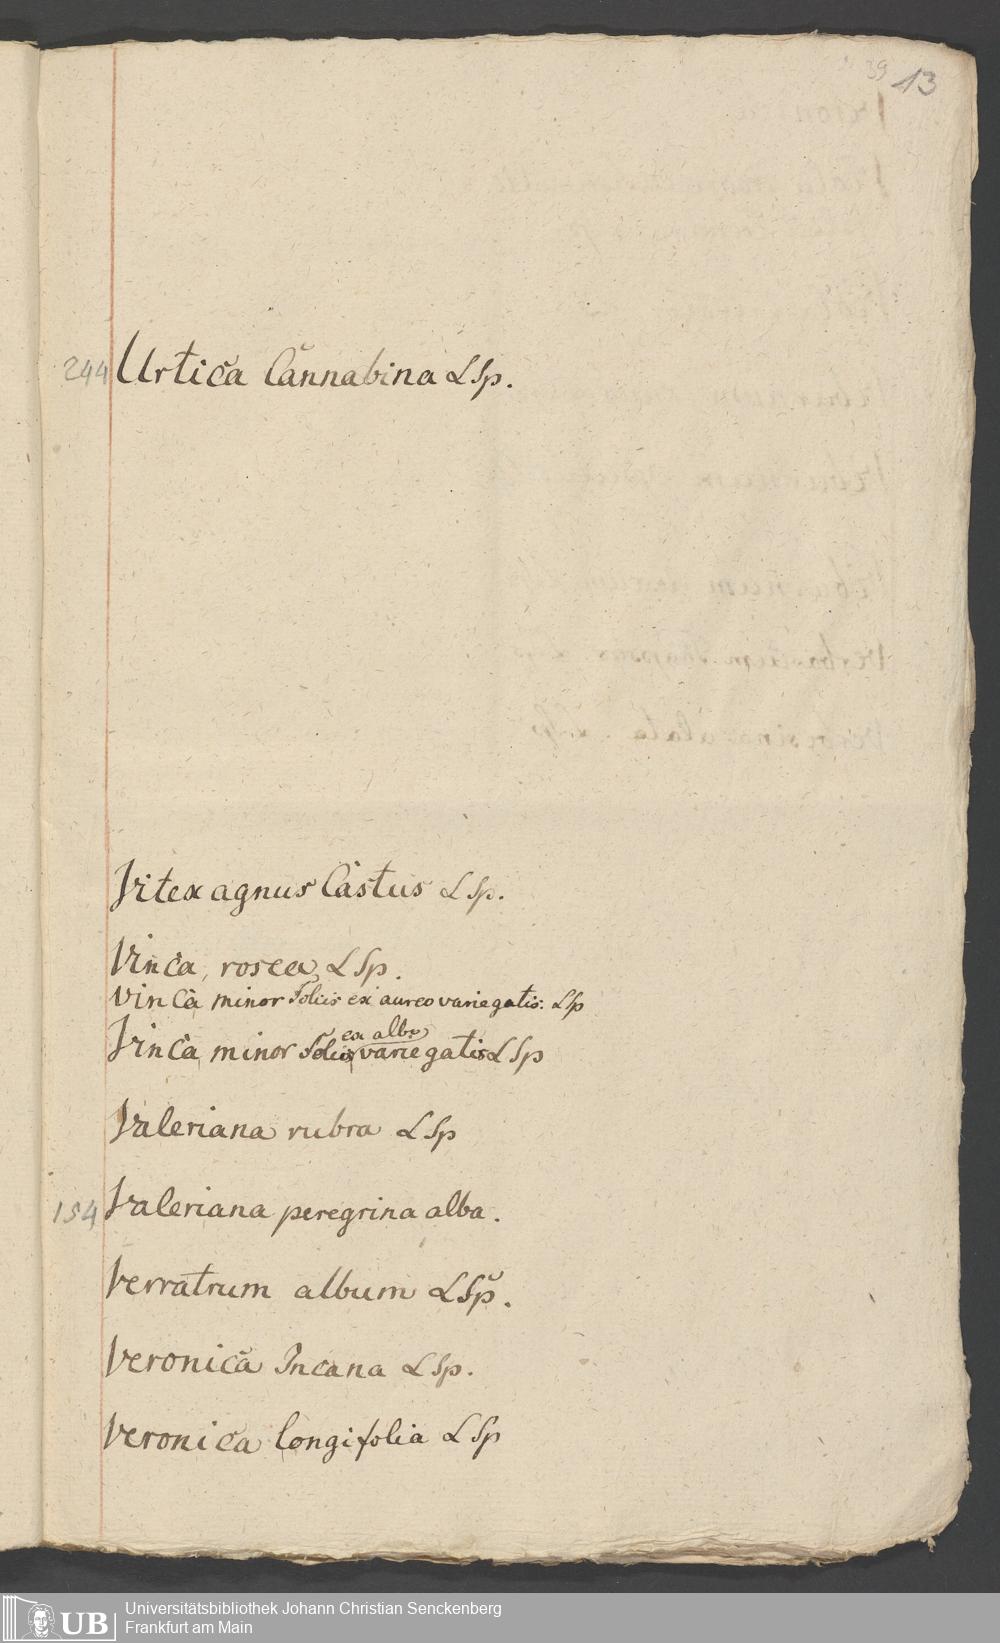 39 13
244 Urtica Cannabina L Sp.
Vitex agnus Castus L Sp.
Vinca, rosea, L Sp.
Vinca minor Foliis ex aureo variegatis: L Sp
ex albo
Vinca, minor Foliis variegatis L Sp
Valeriana rubra L Sp
154 Valeriana peregrina alba.
Verratrum album L Sp.
Veronica Incana L Sp.
Veronica longifolia L Sp
UB Universitätsbibliothek Johann Christian Senckenberg
Frankfurt am Main